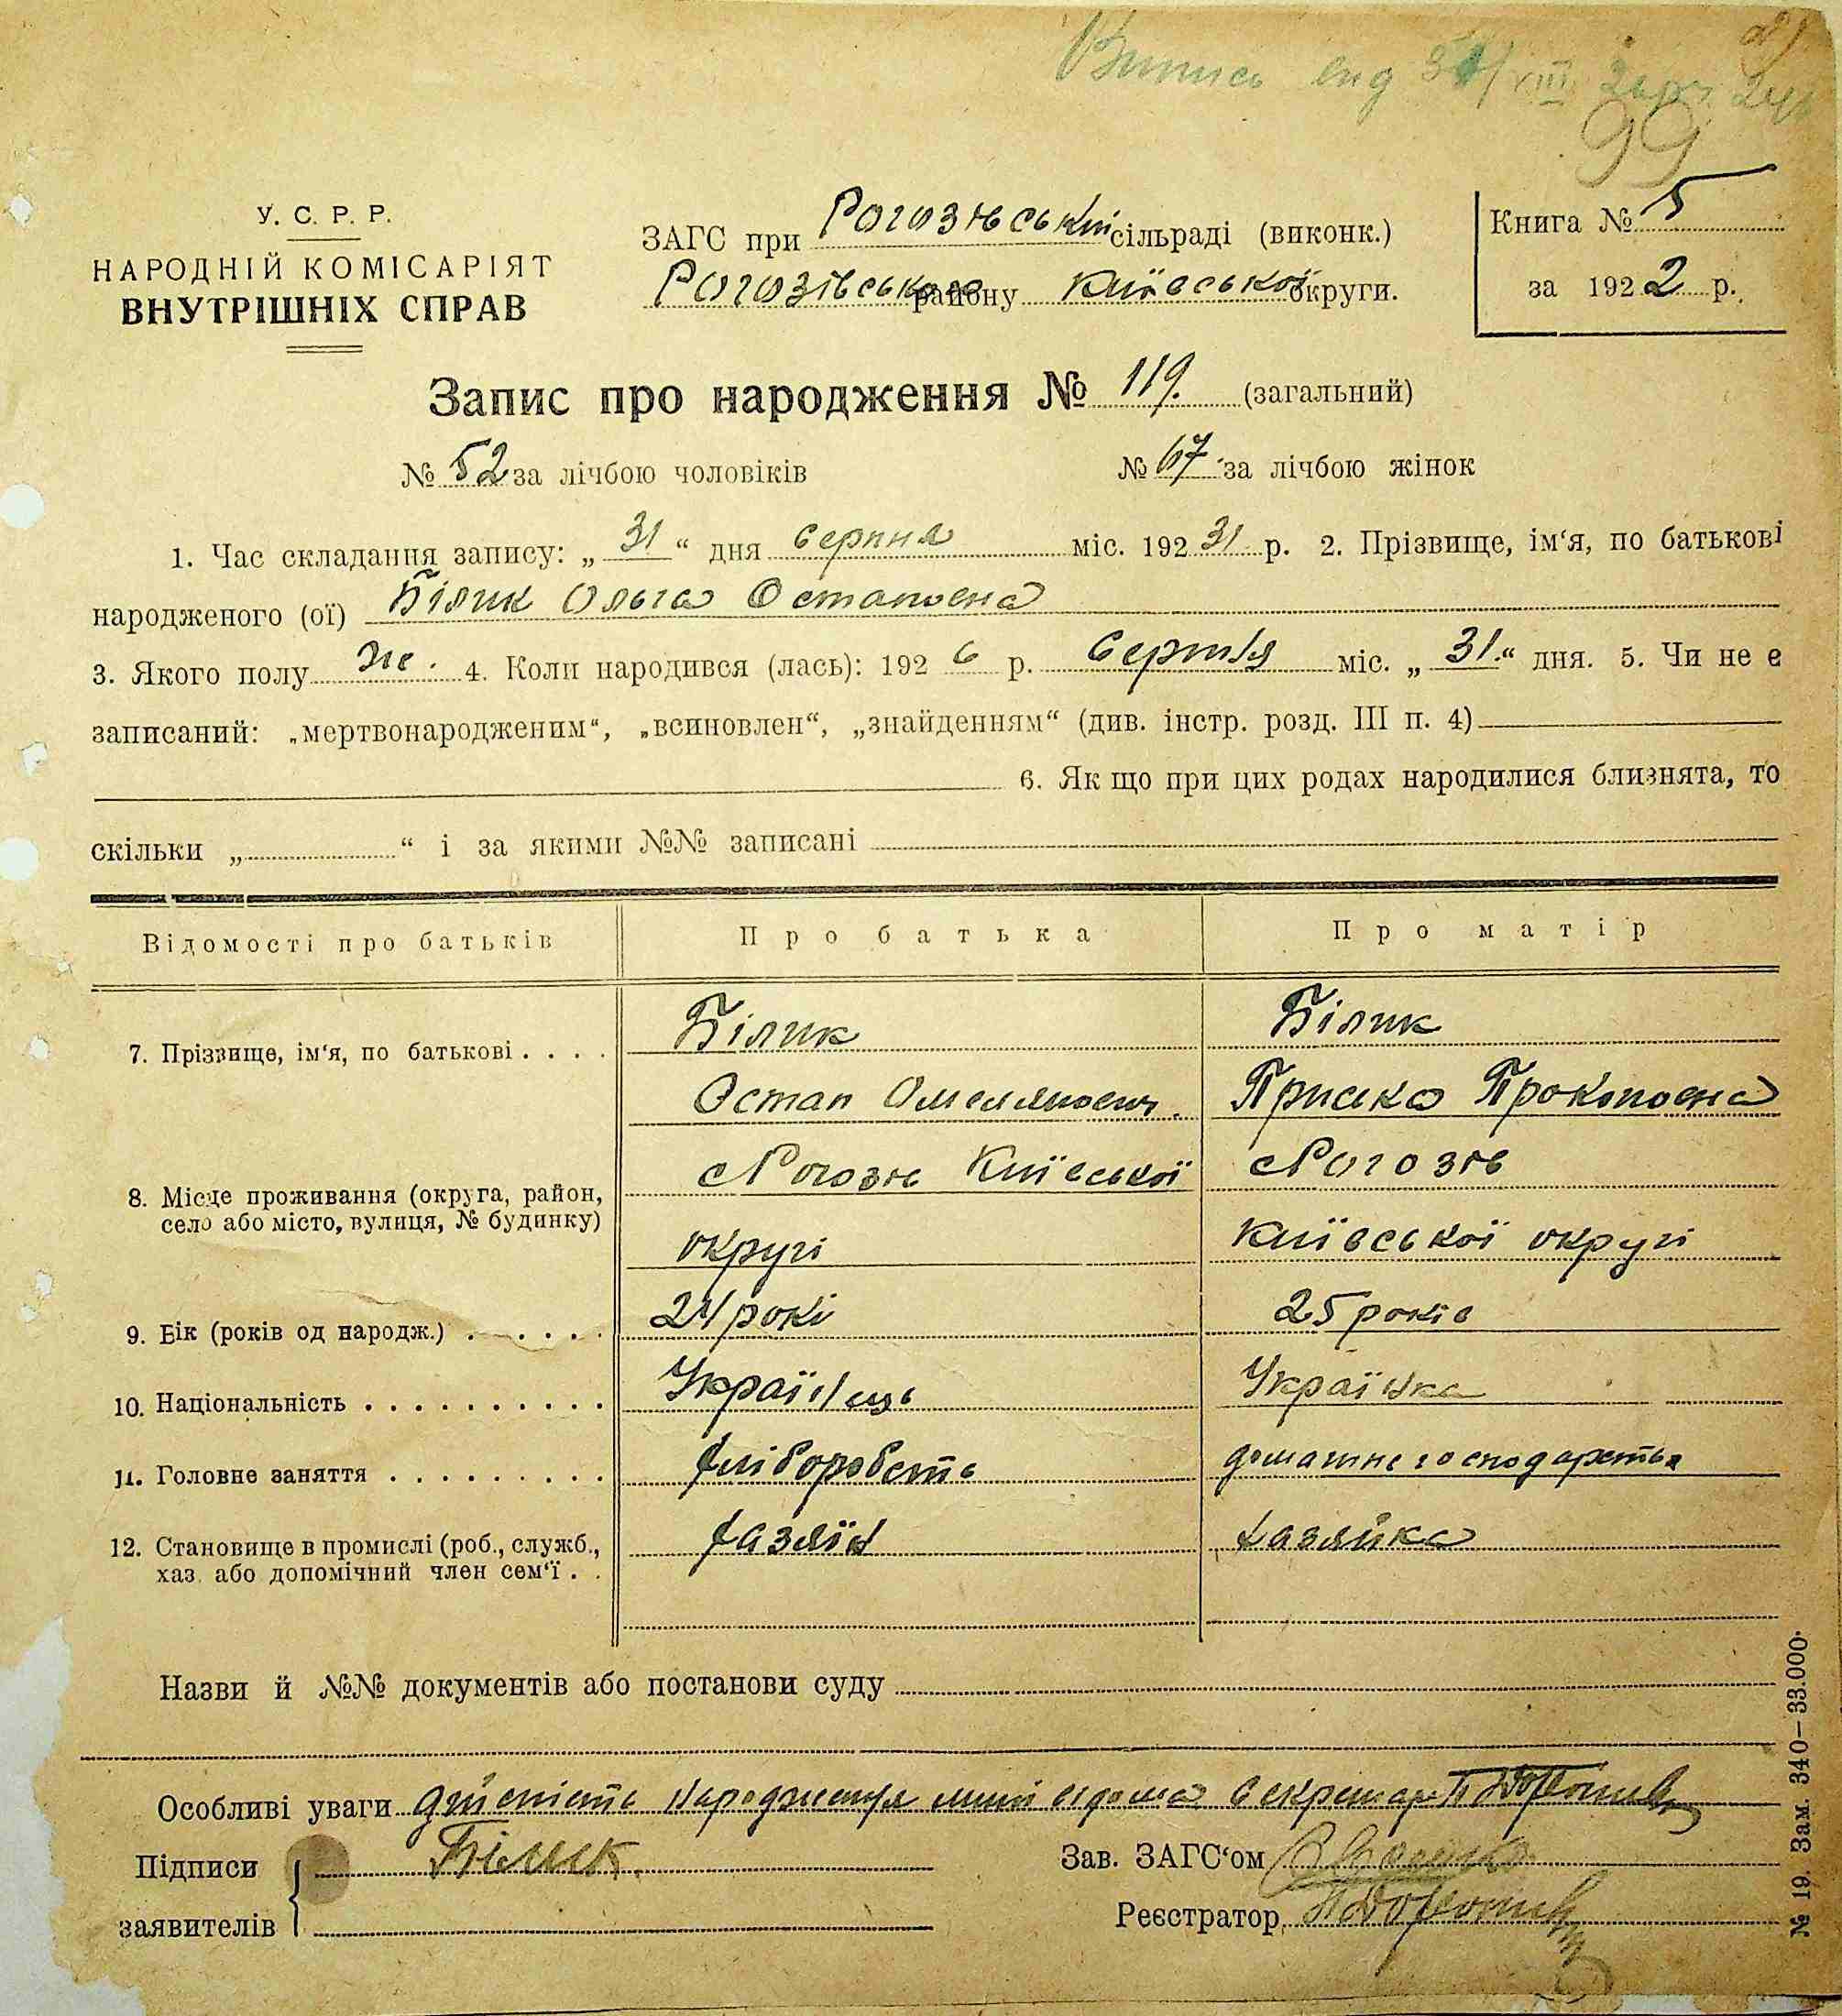 Випись
99
У. С. Р. Р.
НАРОДНІЙ КОМІСАРІЯТ
ВНУТРІШНІХ СПРАВ
ЗАГС при Рогозівській сільраді (виконк.)
Рогозівського району Київської округи.
Книга № 5
за 1922 р.
Запис про народження № 119. (загальний)
№ 52 за лічбою чоловіків
№ 67 за лічбою жінок
1. Час складання запису: „ 31 “ дня серпня міс. 192 31 р. 2. Прізвище, ім‘я, по батькові
народженого (ої) Білик Ольга Остаповна
3. Якого полу же. 4. Коли народився (лась): 192 6 р. Серпня міс. „ 31.“ дня. 5. Чи не є
записаний: „мертвонародженим“, „всиновлен“, „знайденням“ (див. інстр. розд. III п. 4)
6. Як що при цих родах народилися близнята, то
скільки „ “ і за якими №№ записані
Відомості про батьків
Про батька
Про матір
7. Прізвище, ім‘я, по батькові . . . .
Білик
Остап Омелянович.
Білик
Приська Прокоповна
8. Місце проживання (округа, район,
село або місто, вулиця, № будинку)
с Рогозів Київської
округи
с Рогозів
Київської округи
9. Вік (років од народж.) . . . . .
24 рокі
25 років
10. Національність . . . . . . . . . .
Українець
Українка
11. Головне заняття . . . . . . . . .
хліборобств
домашнє господарства
12. Становище в промислі (роб., служб.,
хаз. або допомічний член сем‘ї . .
хазяїн
хазяйка
Назви й №№ документів або постанови суду
Особливі уваги дійсність народження мині відома секретар
Підписи
заявителів
Білик.
Зав. ЗАГС‘ом
Реєстратор
№ 19. Зам. 340–33.000.